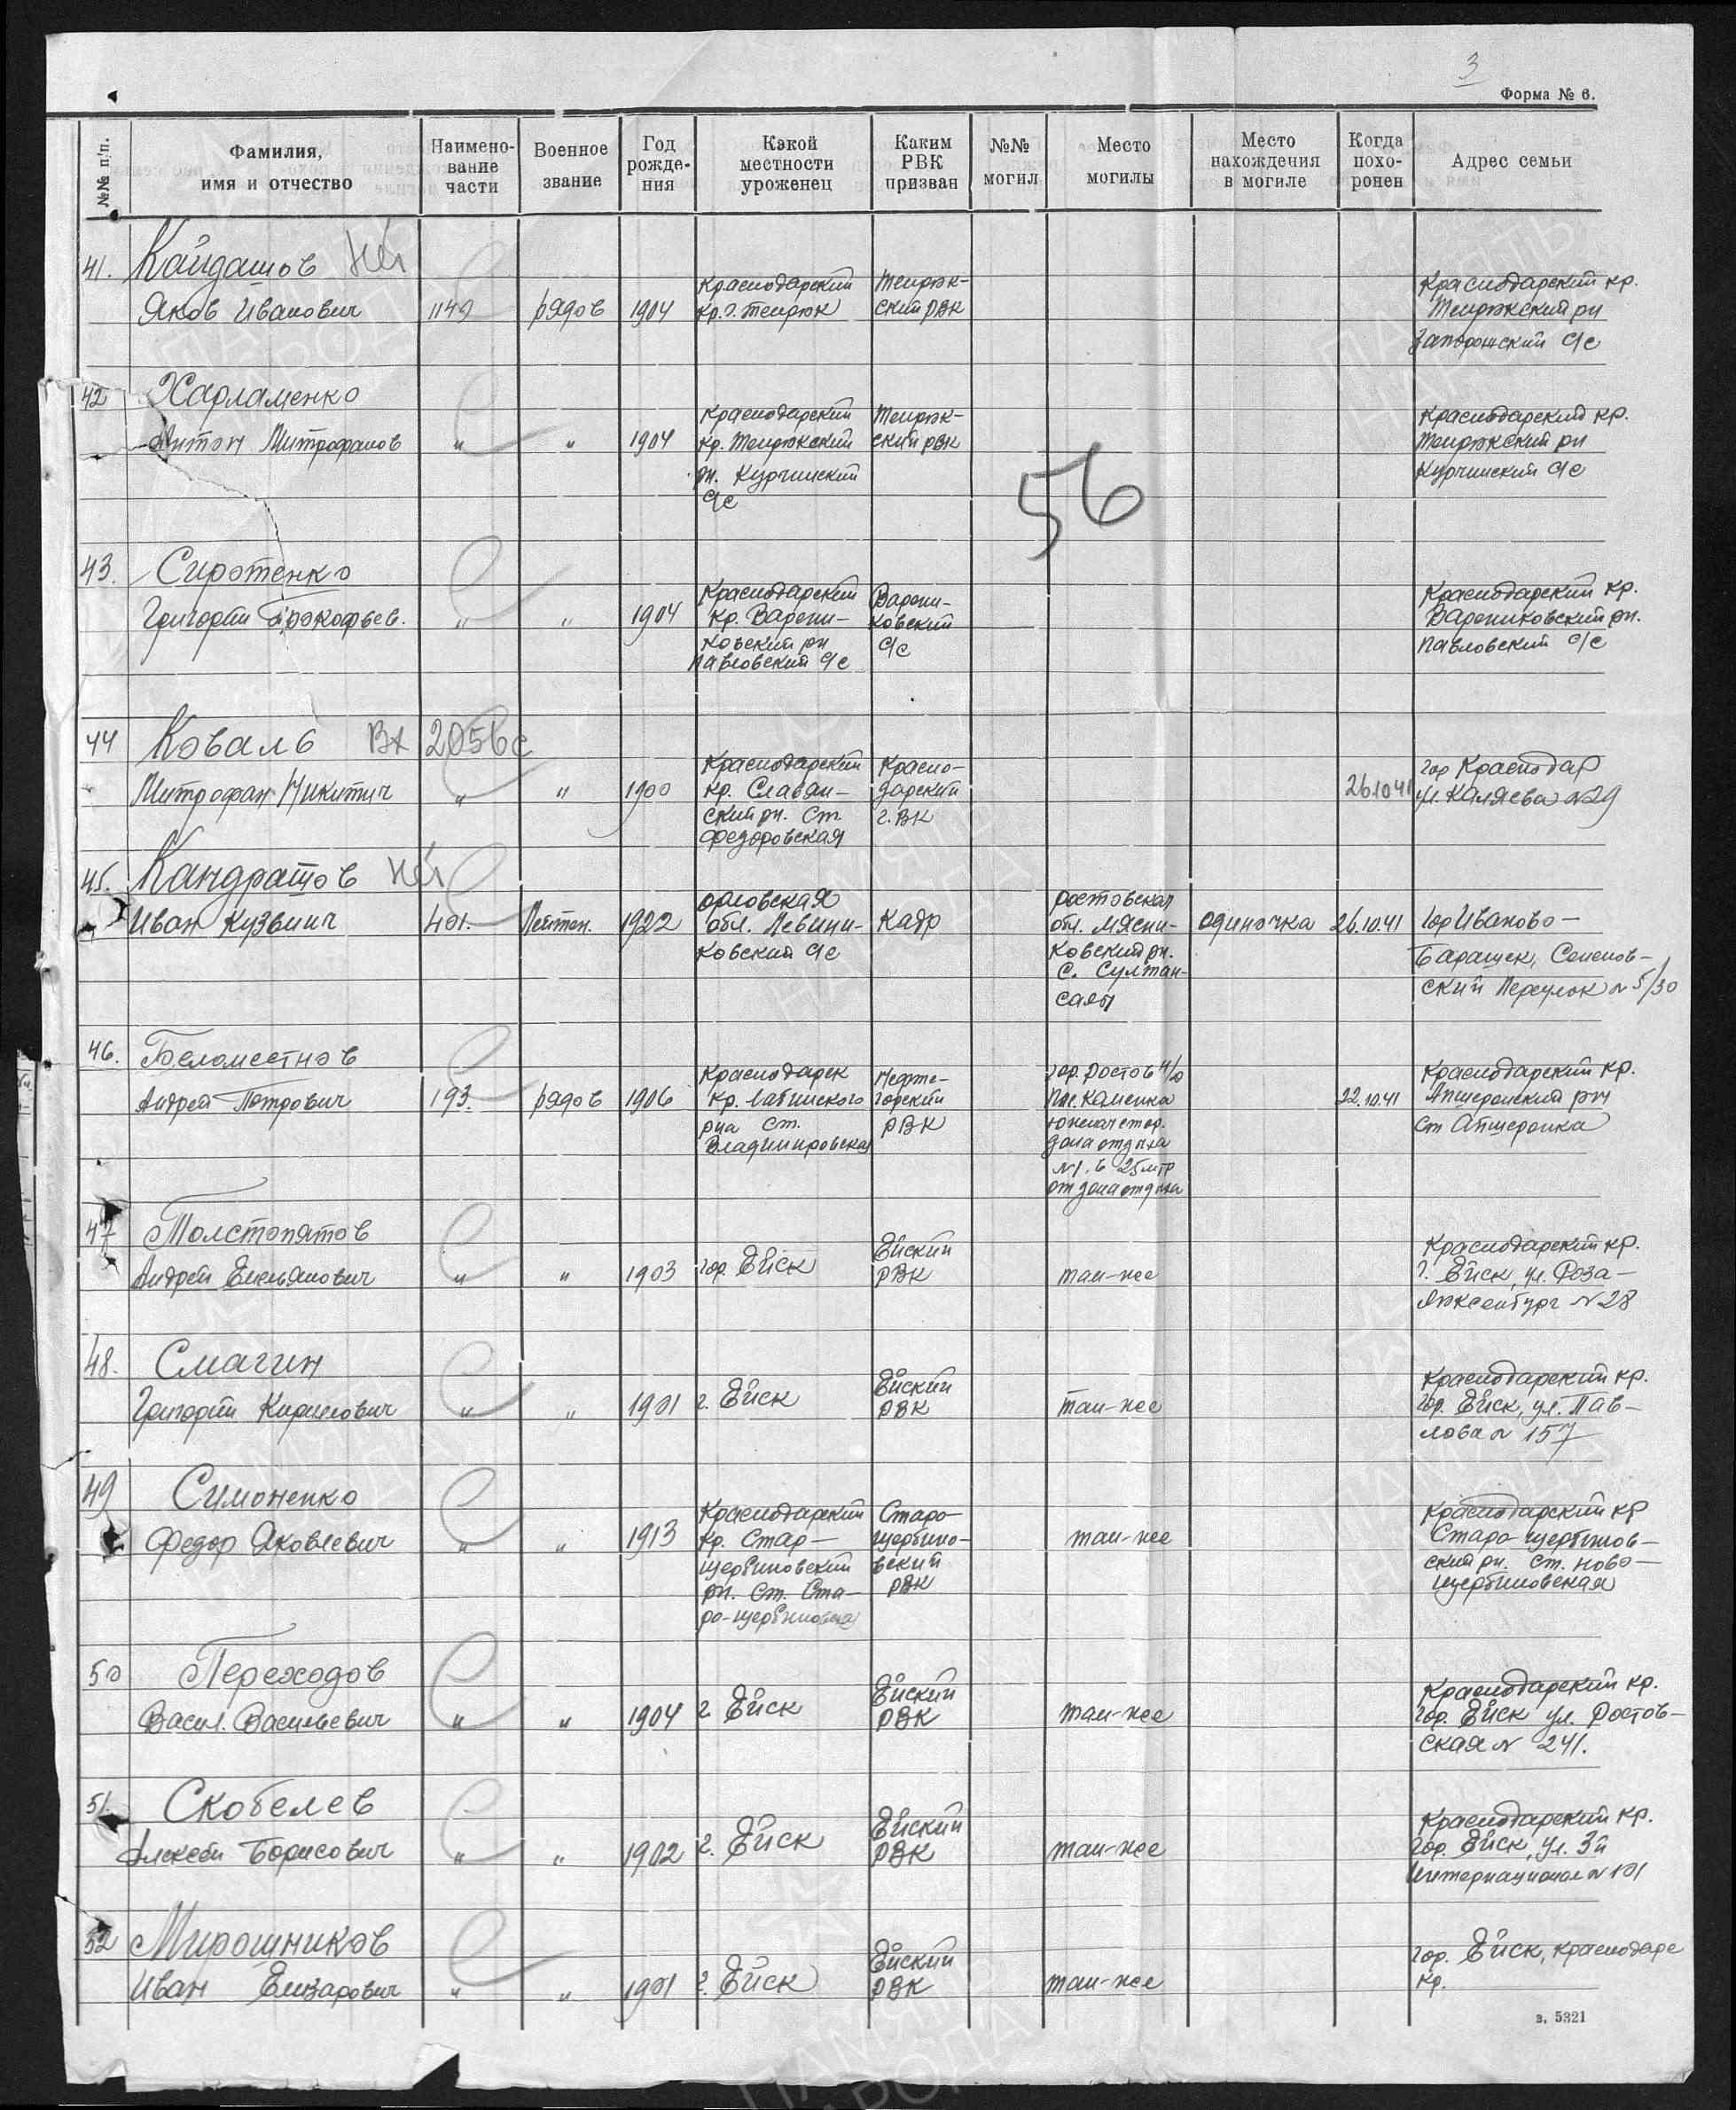 3
Форма № 6.
№№ п/п.
Фамилия, имя и отчество
Наименование части
Военное звание
Год рождения
Какой местности уроженец
Каким РВК призван
№№ могил
Место могилы
Место нахождения в могиле
Когда похоронен
Адрес семьи
41. Кайдашов
Яков Иванович 1149 рядов 1904
Краснодарский
кр. г. Темрюк
Темрюк-
ский РВК
Краснодарский кр.
Темрюкский рн
Запорожский с/с
42 Харламенко
Антон Митрофанов " " 1904
Краснодарский
кр. Темрюкский
рн. Курчинский
с/с
Темрюк-
ский РВК
Краснодарский кр.
Темрюкский рн
Курчинский с/с
56
43. Сиротенко
Григорий Прокофьев. " " 1904
Краснодарский
кр. Варени-
ковский рн
Павловский с/с
Варени-
ковский
с/с
Краснодарский кр.
Варениковский рн.
Павловский с/с
44 Коваль Вх 2056с
Митрофан Никитич " " 1900
Краснодарский
кр. Славян-
ский рн. ст.
Федоровская
Красно-
дарский
г.ВК
26.10.41
гор Краснодар
ул. Каляева №29
45. Кандратов
Иван Кузмич 401. Лейтен. 1922
Орловская
обл. Левини-
ковский с/с
Кадр
Ростовская
обл. Мясни-
ковский рн.
с. Султан-
салы
одиночка 26.10.41
гор Иваново-
Баращек, Семенов-
ский Переулок № 5/30
46. Беломестнов
Андрей Петрович 193. рядов 1906
Краснодарск
кр. Лабинского
рна ст.
Владимировская
Нефте-
горский
РВК
гор. Ростов н/д
пос. Каменка
южная стор.
дома отдыха
№1. в 25 мтр
от дома отдыха
22.10.41
Краснодарский кр.
Апшеронский рн
ст Апшеронка
47 Толстопятов
Андрей Емельянович " " 1903 гор. Ейск
Ейский
РВК
там-же
Краснодарский кр.
г. Ейск, ул. Роза-
Люксембург № 28
48. Смагин
Григорий Кириллович " " 1901 г. Ейск
Ейский
РВК
там-же
Краснодарский кр.
гор. Ейск, ул. Пав-
лова № 157
49 Симоненко
Федор Яковлевич " " 1913
Краснодарский
кр. Стар-
щербиновский
рн. ст. Ста-
ро-щербиновка
Старо-
щербино-
вский
РВК
там-же
Краснодарский кр
Старо-щербинов-
ский рн. ст. Ново-
щербиновская
50 Переходов
Васил. Васильевич " " 1904 г. Ейск
Ейский
РВК
там-же
Краснодарский кр.
гор. Ейск ул. Ростов-
ская № 241.
51. Скобелев
Алексей Борисович " " 1902 г. Ейск
Ейский
РВК
там-же
Краснодарский кр.
гор. Ейск, ул. 3й
Интернационал № 101
52 Мирошников
Иван Елизарович " " 1901 г. Ейск
Ейский
РВК
там-же
гор. Ейск, Краснодарс
кр.
з. 5321
ПАМЯТЬ
НАРОДА